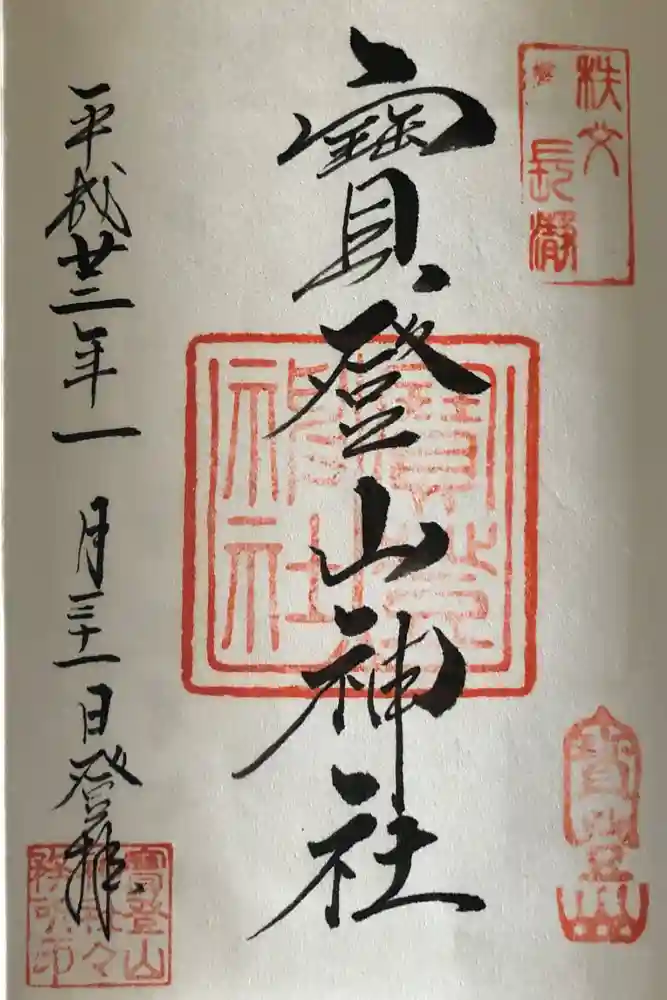 秩父
長瀞
寶登山
寶登山神社
平成廿三年一月三十一日登拝
寶登山
神社々
務所印